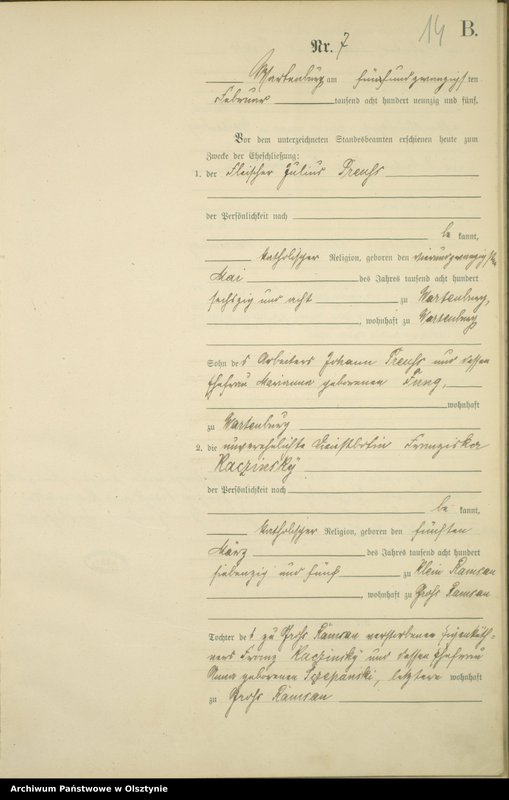 14 B.
Nr. 7
Wartenburg am fünfundzwanzigsten
Februar tausend acht hundert neunzig und fünf.
Vor dem unterzeichneten Standesbeamten erschienen heute zum
Zwecke der Eheschließung:
1. der Fleischer Julius Preuß
der Persönlichkeit nach
be kannt,
katholischer Religion, geboren den vierundzwanzigsten
Mai des Jahres tausend acht hundert
sechszig und acht zu Wartenburg,
, wohnhaft zu Wartenburg
Sohn des Arbeiters Johann Preuß und dessen
Ehefrau Marianna geborenen
wohnhaft
zu Wartenburg
2. die unverehelichte Franziska
Kaczinsky
der Persönlichkeit nach
be kannt,
katholischer Religion, geboren den fünften
März des Jahres tausend acht hundert
siebenzig und fünf zu Klein Ramsau
, wohnhaft zu Groß Ramsau
Tochter des zu Groß Ramsau verstorbenen Eigenkäth-
ners Franz Kaczinsky und dessen Ehefrau
Anna geborenen Sczepanski, letztere wohnhaft
zu Groß Ramsau
Archiwum Państwowe w Olsztynie